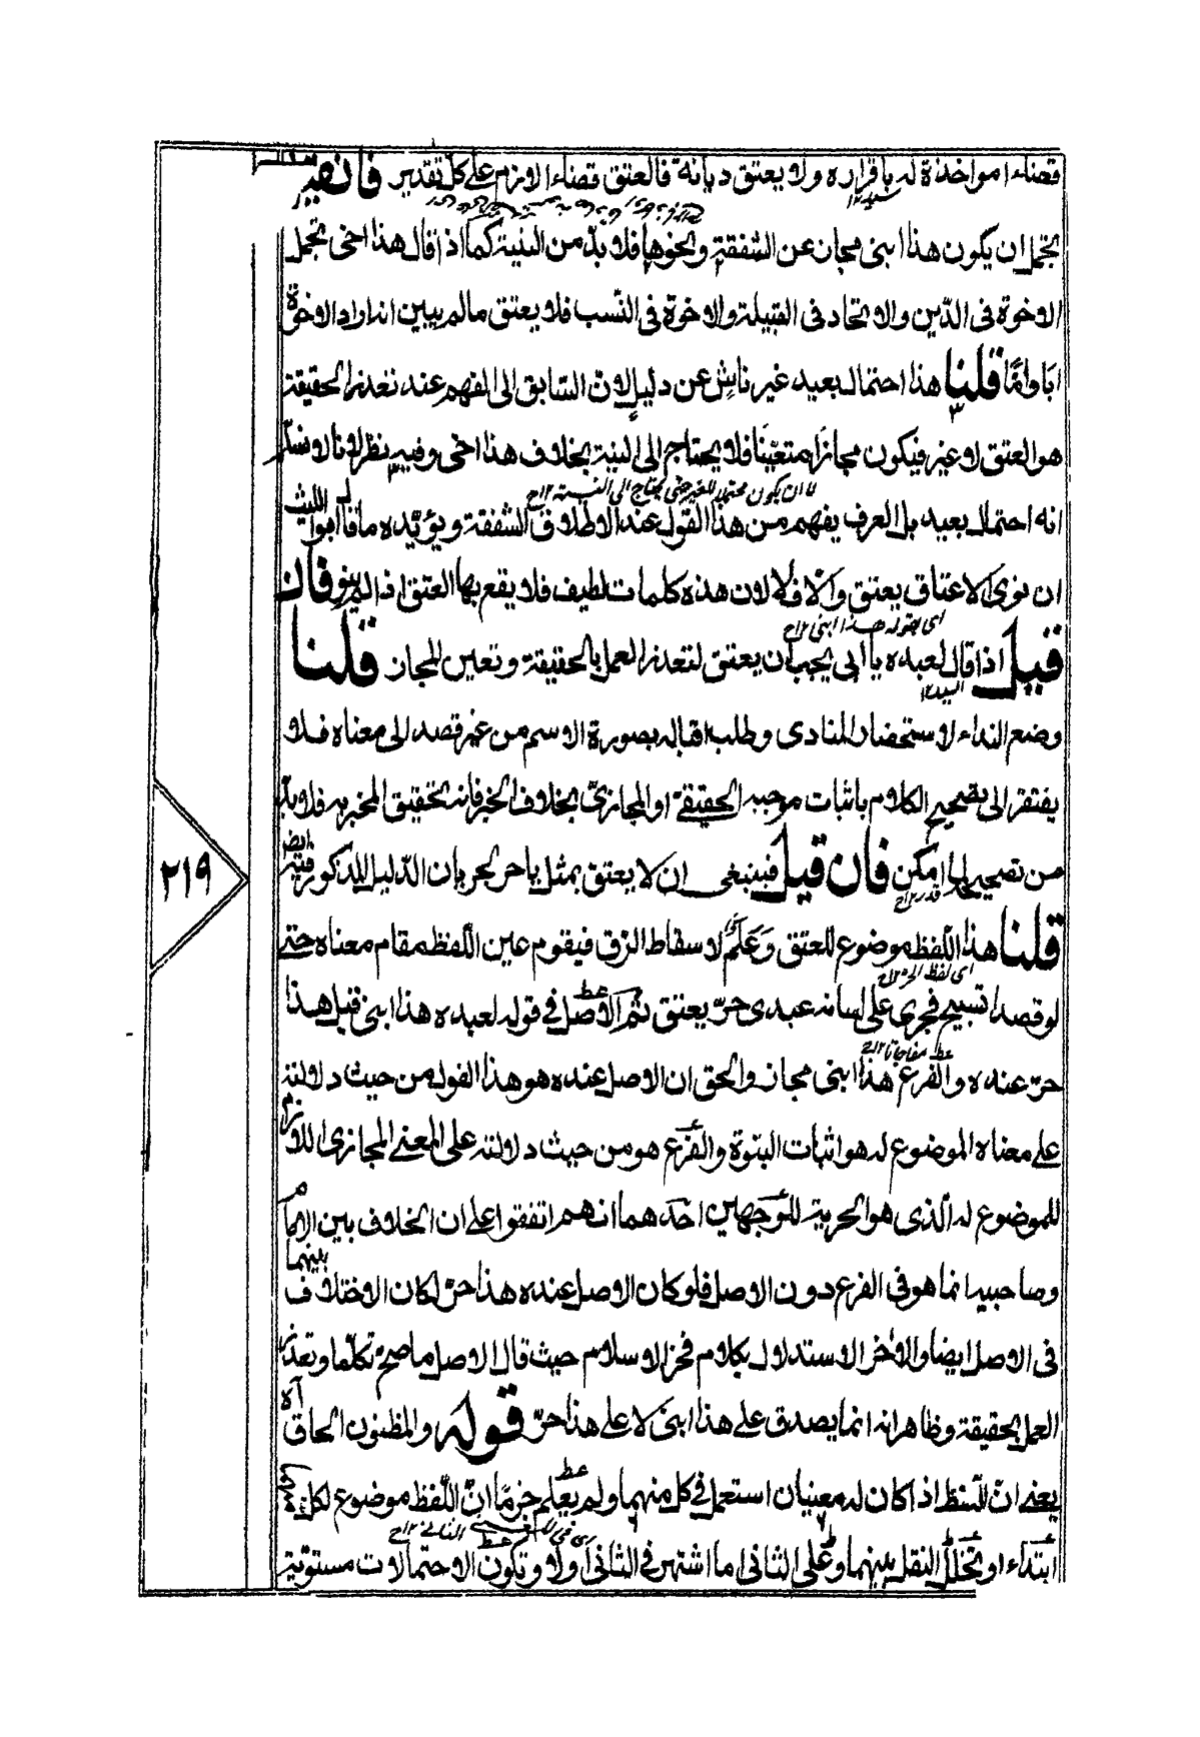 قضاء مواخذة له باقراره ولا يعتق ديانة فالعتق قضاء لازم على كل تقدير فان قيل
يحتمل ان يكون هذا ابنى مجاز عن الشفقة ونحوها فلا بدّ من النية كما اذا قال هذا اخى يحتمل
الاخوة فى الدّين والاتحاد فى القبيلة والاخوة فى النّسب فلا يعتق مالم يبين انه اراد الاخوّة
ابًا وامًّا قلنا هذا احتمال بعيد غير ناشٍ عن دليل لان السّابق الى الفهم عند تعذر الحقيقة
هو العتق لا غير فيكون مجازًا متعيّنًا فلا يحتاج الى النية بخلاف هذا اخى وفيه نظر لانا لا نسلم
انه احتمال بعيد بل العرف يفهم من هذا القول عند الاطلاق الشفقة ويؤيّده ما قال ابوالليث
ان نوى الاعتاق يعتق والّا فلا لان هذه كلمات لطيف فلا يقع بها العتق اذا لم ينو فان
قيل اذا قال لعبده يا ابنى يجب ان يعتق لتعذر العمل بالحقيقة وتعين المجاز قلنا
وضع النداء لاستحضار المنادى وطلب اقباله بصورة الاسم من غير قصد الى معناه فلا
يفتقر الى تصحيح الكلام باثبات موجبه الحقيقىّ او المجازىّ بخلاف الخبر فانه لتحقيق المخبر به فلا بدّ
من تصحيحه بما امكن فان قيل فينبغى ان لا يعتق بمثل يا حر لجريان الدّليل المذكور فيه ايضا
قلنا هذا اللّفظ موضوع للعتق وعَلَم لاسقاط الرّق فيقوم عين اللّفظ مقام معناه حتى
لو قصد التسبيح فجرى على لسانه عبدى حرّ يعتق ثم الاصل فى قوله لعبده هذا ابنى قيل هذا
حرّ عنده والفرع هذا ابنى مجاز والحق ان الاصل عنده هو هذا القول من حيث دلالته
على معناه الموضوع له هو اثبات البنوّة والفرع هو من حيث دلالته على المعنى المجازى اللازم
للموضوع له الّذى هو الحرية لوجهين احدهما انهم اتفقوا على ان الخلاف بين الامام
وصاحبيه انما هو فى الفرع دون الاصل فلو كان الاصل عنده هذا حرّ لكان الاختلاف بينهما
فى الاصل ايضا والآخر الاستدلال بكلام فخر الاسلام حيث قال الاصل ما صحّ تكلّما وتعذر
العمل بحقيقته وظاهر انه انما يصدق على هذا ابنى لا على هذا حرّ قوله والمظنون الحاق آه
يعنى انّ اللّفظ اذا كان له معنيان استعمل فى كل منهما ولم يعلم جزمًا انّ اللّفظ موضوع لكل
ابتداء او تخلّل النقل بينهما وعلى الثانى اما اشتهر فى الثانى اولا وتكون الاحتمالات مستوية
٢١٩